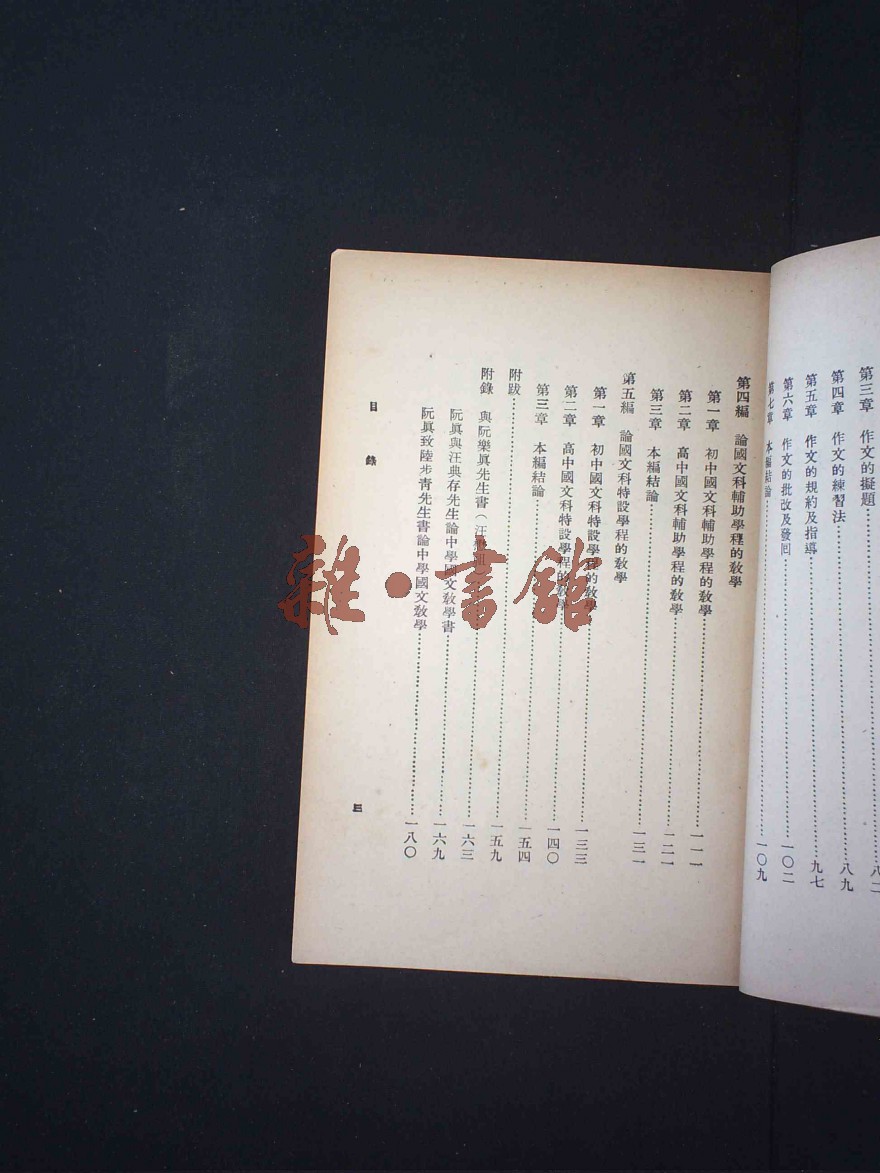 第三章 作文的擬題……八二
第四章 作文的練習法……八九
第五章 作文的規約及指導……九七
第六章 作文的批改及發回……一〇二
第七章 本編結論……一〇九
第四編 論國文科輔助學程的敎學
第一章 初中國文科輔助學程的敎學……一一一
第二章 高中國文科輔助學程的敎學……一二一
第三章 本編結論……一三一
第五編 論國文科特設學程的敎學
第一章 初中國文科特設學程的敎學……一三三
第二章 高中國文科特設學程的敎學……一四〇
第三章 本編結論……一五四
附跋……一五九
附錄 與阮樂眞先生書(汪……一六三
阮眞與汪典存先生論中學國文敎學書……一六九
阮眞致陸步靑先生書論中學國文敎學……一八〇
目錄
三
雜·書館